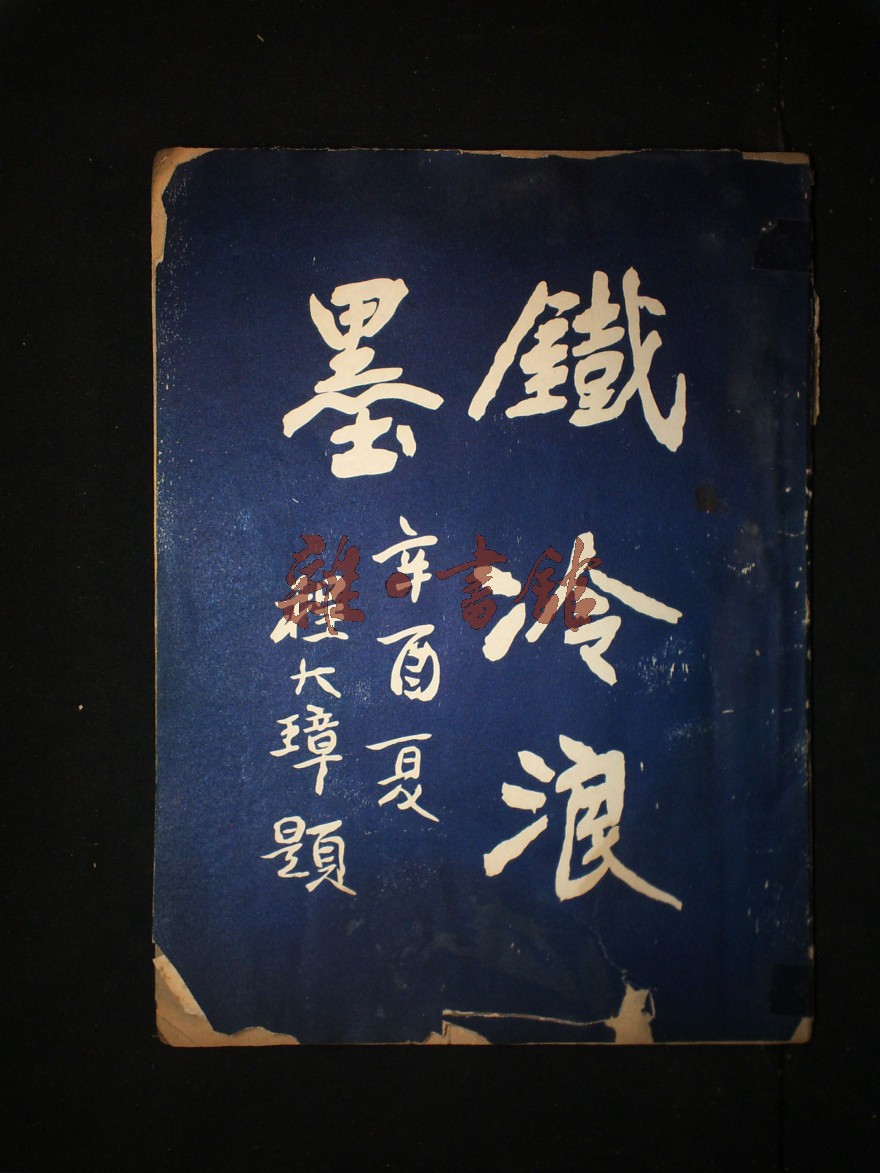 鐵冷浪
墨
辛酉夏
程大璋題
雜·書館